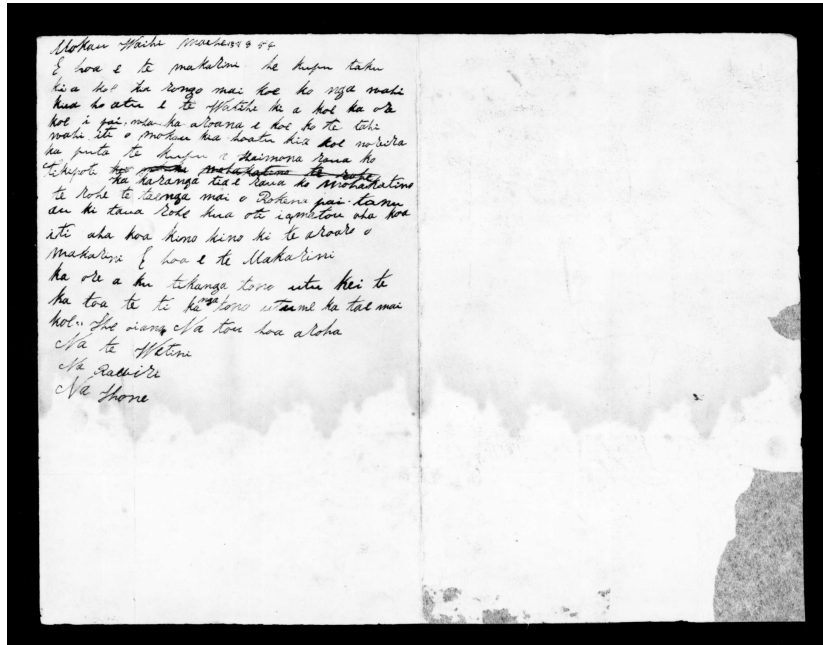 Mokau Waihi Maehe 1854
E hoa e te makarini he kupu taku
kia koe ka rongo mai koe ko nga wahi
kua hoatu e te Watihi ki a koe ka ore
koe i pai, mau ka aroana e koe, ko te tahi
wahi iti o mokau kia hoatu kia koe noreira
ka puta te kupu a Haimona raua ko
Tikipoti mohakatino te rohe
ka karanga tia e raua ko Mohakatino
te rohe te taenga mai o Rokena pai tanu
au ki taua rohe kua oti iamatou aha koa
iti aha koa kino kino ki te aroaro o
Makarini E hoa e te Makarini
ka ore a ku tikanga tono utu kei te
ka toa te ti ka nga tono utu me ka tae mai
koe.. Heoiano Na tou hoa aroha
Na te Wetini
Na Raewiri
Na Hone